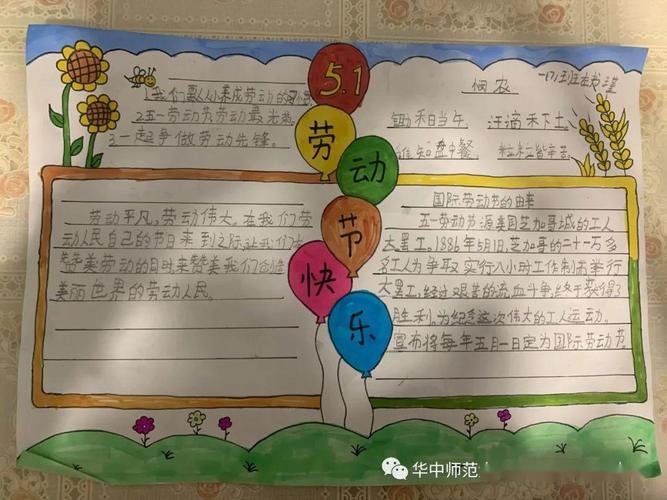 5.1
劳
动
节
快
乐
1.我们要从小养成劳动的习惯
2.五一劳动节劳动最光荣
3.一起争做劳动先锋。
劳动平凡,劳动伟大。在我们劳
动人民自己的节日来到之际,让我们大
赞美劳动的同时来赞美我们创造
美丽世界的劳动人民。
悯农
锄禾日当午,汗滴禾下土。
谁知盘中餐,粒粒皆辛苦。
国际劳动节的由来
五一劳动节源美国芝加哥城的工人
大罢工。1886年5月1日,芝加哥的二十一万多
名工人为争取实行八小时工作制而举行
大罢工,经过艰苦的流血斗争,终于获得了
胜利。为纪念这次伟大的工人运动。
宣布将每年五月一日定为国际劳动节
华中师范